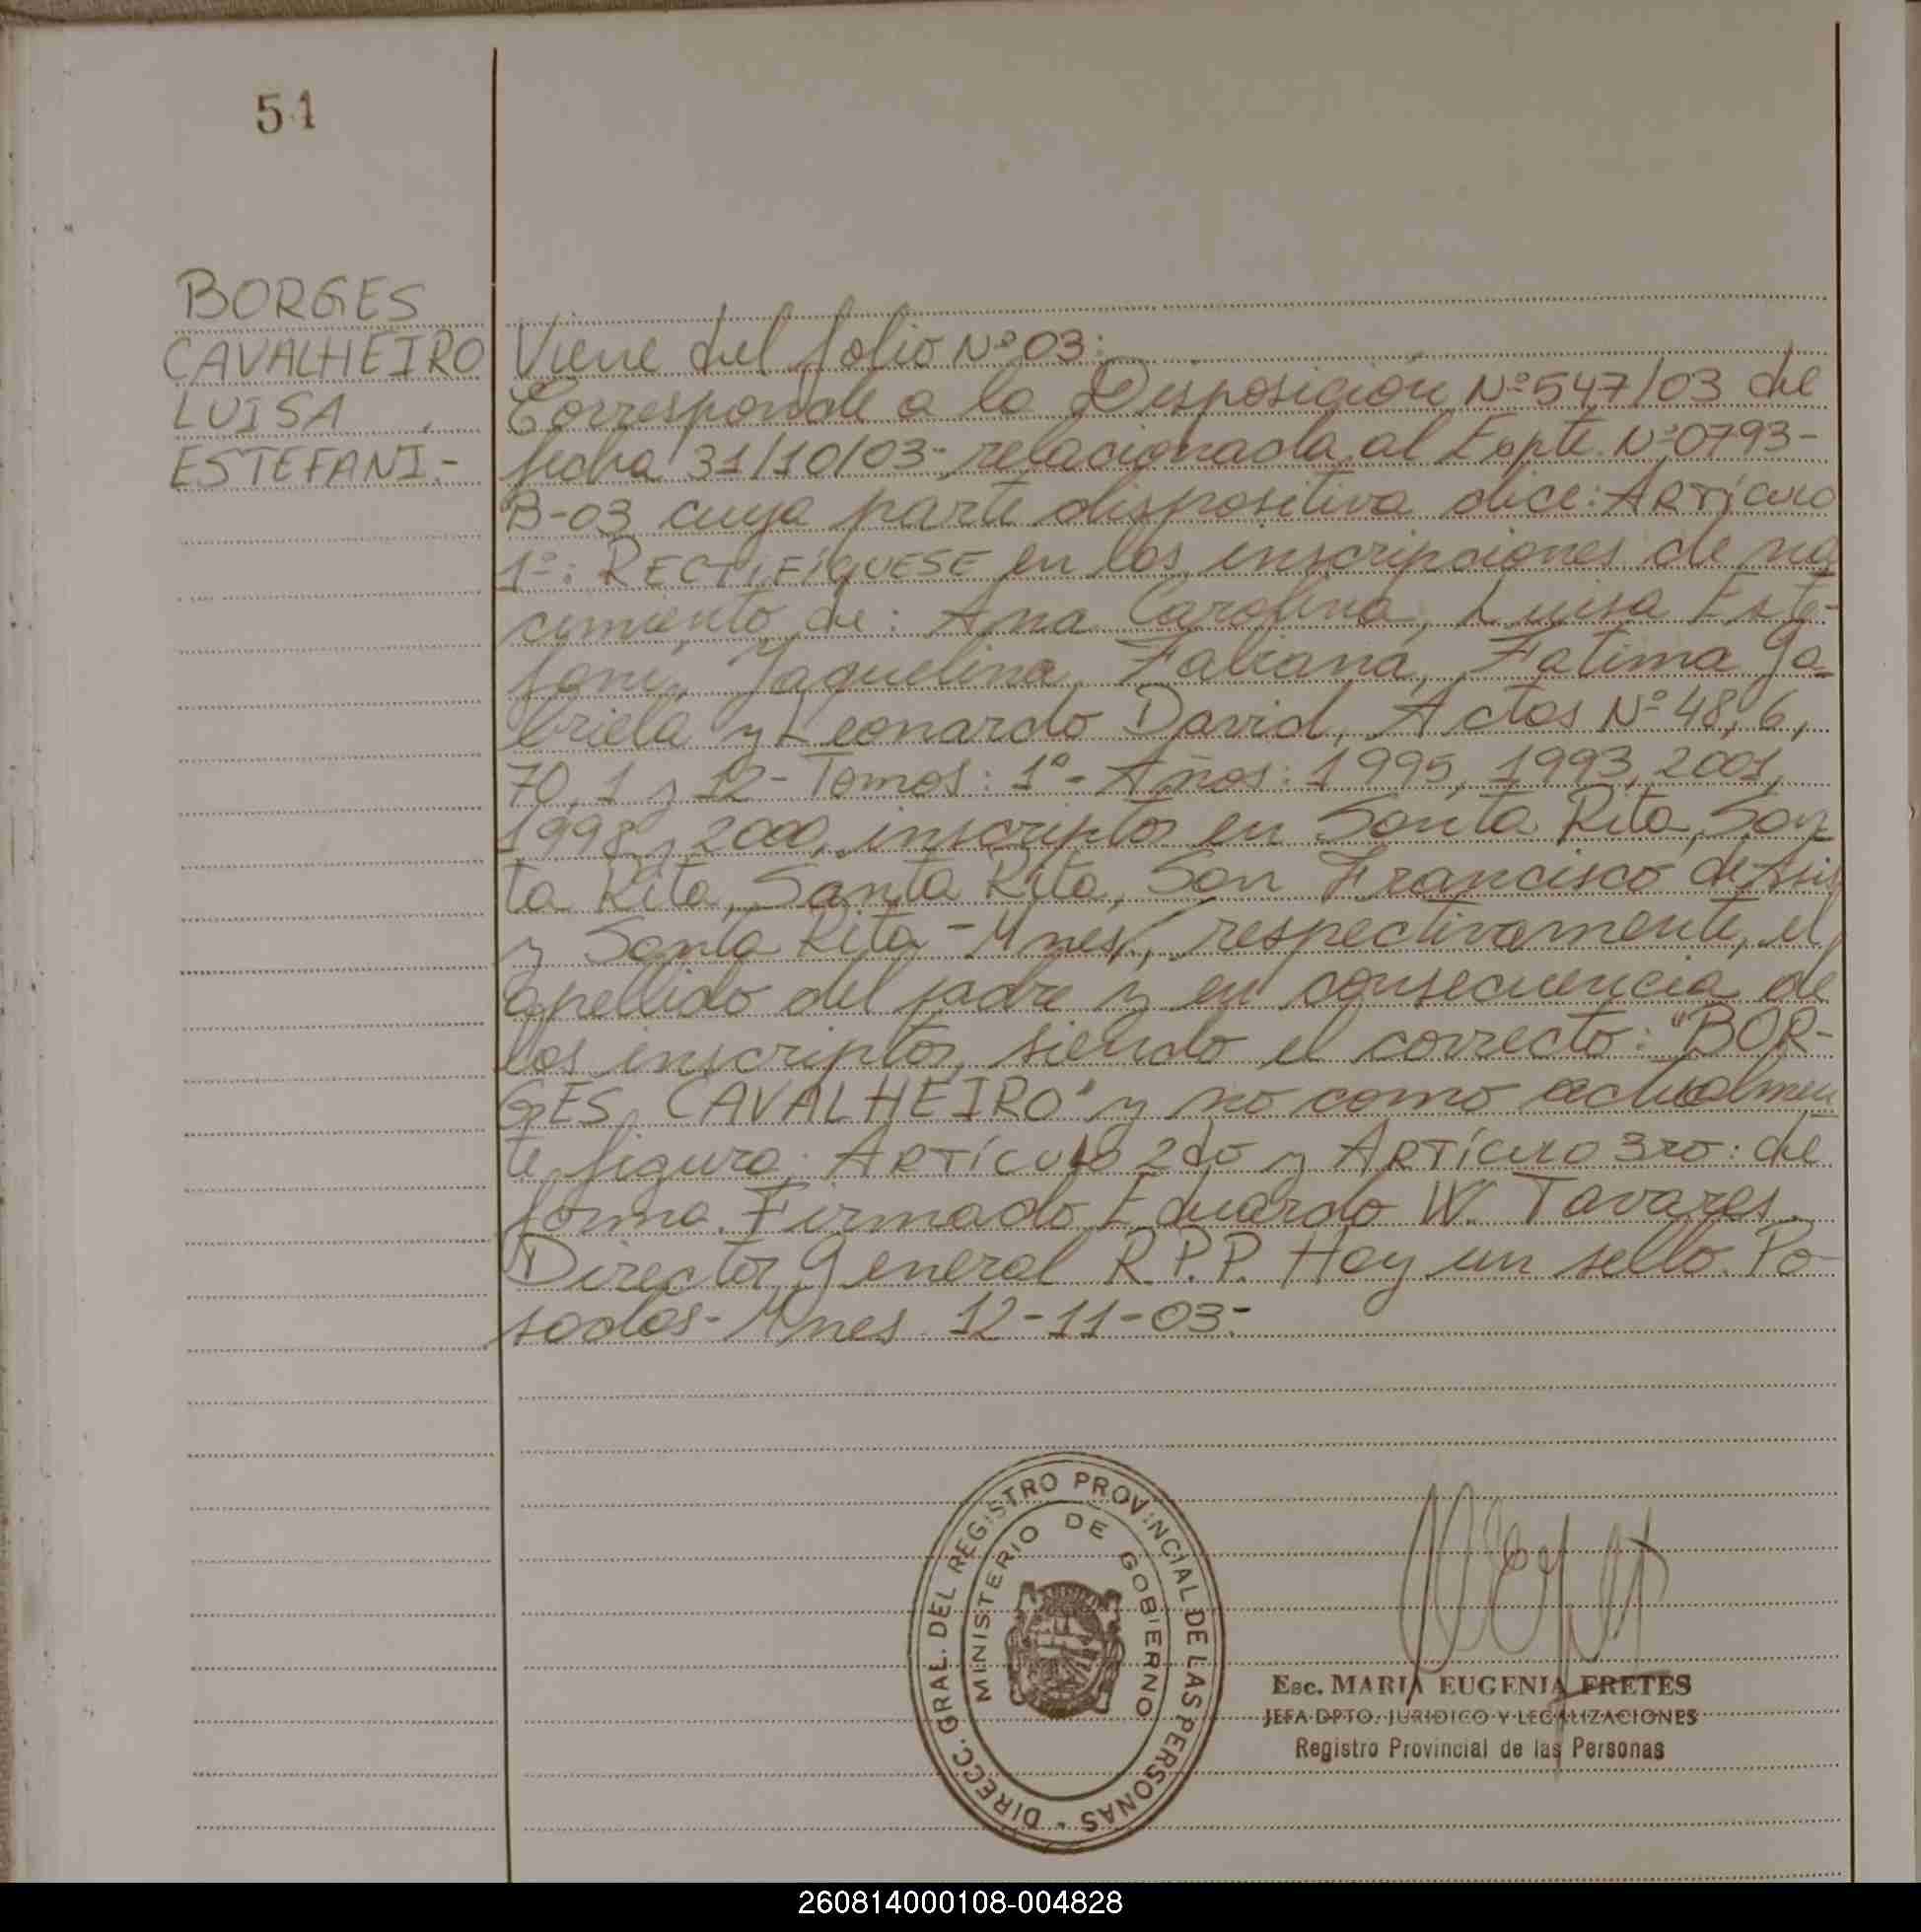 51
BORGES
CAVALHEIRO
LUISA
ESTEFANI.-
Viene del folio Nº 03:
Corresponde a la Disposición Nº 547/03 de
fecha 31/10/03- relacionada al Expte. Nº 0793-
B-03 cuya parte dispositiva dice: ARTÍCULO
1º: RECTIFÍQUESE en las inscripciones de na
cimiento de: Ana Carolina, Luisa Este-
fani, Jaquelina Fabiana, Fatima Ga-
briela y Leonardo David, Actas Nº 48, 6,
70, 1 y 12- Tomos: 1º- Años: 1995, 1993, 2001,
1998 y 2000, inscriptos en Santa Rita, San
ta Rita, Santa Rita, San Francisco de Asis
y Santa Rita - Mnes, respectivamente, el
apellido del padre y en consecuencia de
los inscriptos, siendo el correcto: "BOR-
GES CAVALHEIRO" y no como actualmen
te figura. ARTÍCULO 2do y ARTÍCULO 3ro: de
forma. Firmado Eduardo W. Tavares.
Director General R.P.P. Hay un sello. Po-
sadas- Mnes 12-11-03-
DIRECC. GRAL. DEL REGISTRO PROVINCIAL DE LAS PERSONAS -
MINISTERIO DE GOBIERNO
Esc. MARIA EUGENIA FRETES
JEFA DPTO. JURIDICO Y LEGALIZACIONES
Registro Provincial de las Personas
260814000108-004828